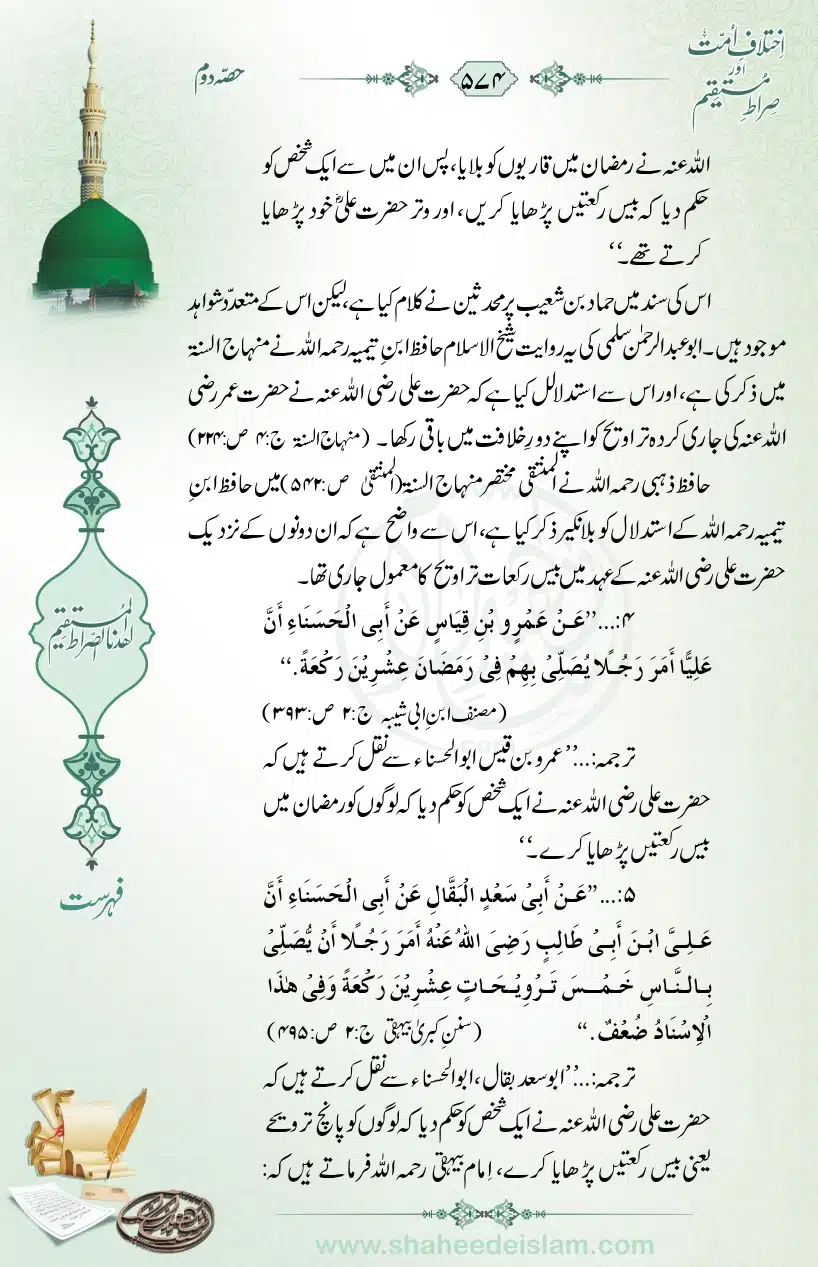 اِختلافِ اُمّت
اور
صراطِ مستقیم
۵۷۴
حصّہ دوم
اللہ عنہ نے رمضان میں قاریوں کو بلایا، پس ان میں سے ایک شخص کو
حکم دیا کہ بیس رکعتیں پڑھایا کریں، اور وتر حضرت علیؓ خود پڑھایا
کرتے تھے۔‘‘
اس کی سند میں حماد بن شعیب پر محدثین نے کلام کیا ہے، لیکن اس کے متعدّد شواہد
موجود ہیں۔ ابوعبدالرحمٰن سلمی کی یہ روایت شیخ الاسلام حافظ ابنِ تیمیہ رحمہ اللہ نے منہاج السنۃ
میں ذکر کی ہے، اور اس سے استدلال کیا ہے کہ حضرت علی رضی اللہ عنہ نے حضرت عمر رضی
اللہ عنہ کی جاری کردہ تراویح کو اپنے دورِ خلافت میں باقی رکھا۔ (منہاج السنۃ ج:۴ ص:۲۲۴)
حافظ ذہبی رحمہ اللہ نے المنتقیٰ مختصر منہاج السنۃ (المنتقیٰ ص:۵۴۲) میں حافظ ابنِ
تیمیہ رحمہ اللہ کے استدلال کو بلانکیر ذکر کیا ہے، اس سے واضح ہے کہ ان دونوں کے نزدیک
حضرت علی رضی اللہ عنہ کے عہد میں بیس رکعات تراویح کا معمول جاری تھا۔
۴:...’’عَنْ عَمْرِو بْنِ قِيَاسٍ عَنْ أَبِى الْحَسَنَاءِ أَنَّ
عَلِيًّا أَمَرَ رَجُلًا يُصَلِّىْ بِهِمْ فِىْ رَمَضَانَ عِشْرِيْنَ رَكْعَةً.‘‘
(مصنف ابنِ ابی شیبہ ج:۲ ص:۳۹۳)
ترجمہ:...’’عمرو بن قیس ابوالحسناء سے نقل کرتے ہیں کہ
حضرت علی رضی اللہ عنہ نے ایک شخص کو حکم دیا کہ لوگوں کو رمضان میں
بیس رکعتیں پڑھایا کرے۔‘‘
۵:...’’عَنْ أَبِىْ سَعْدٍ الْبَقَّالِ عَنْ أَبِى الْحَسَنَاءِ أَنَّ
عَلِىَّ ابْنَ أَبِىْ طَالِبٍ رَضِىَ اللهُ عَنْهُ أَمَرَ رَجُلًا أَنْ يُّصَلِّىْ
بِالنَّاسِ خَمْسَ تَرْوِيْحَاتٍ عِشْرِيْنَ رَكْعَةً وَفِىْ هٰذَا
الْاِسْنَادُ ضُعْفٌ.‘‘ (سننِ کبریٰ بیہقی ج:۲ ص:۴۹۵)
ترجمہ:...’’ابوسعد بقال، ابوالحسناء سے نقل کرتے ہیں کہ
حضرت علی رضی اللہ عنہ نے ایک شخص کو حکم دیا کہ لوگوں کو پانچ ترویحے
یعنی بیس رکعتیں پڑھایا کرے، اِمام بیہقی رحمہ اللہ فرماتے ہیں کہ:
اهدنا الصّراط المستقیم
فہرست
www.shaheedeislam.com